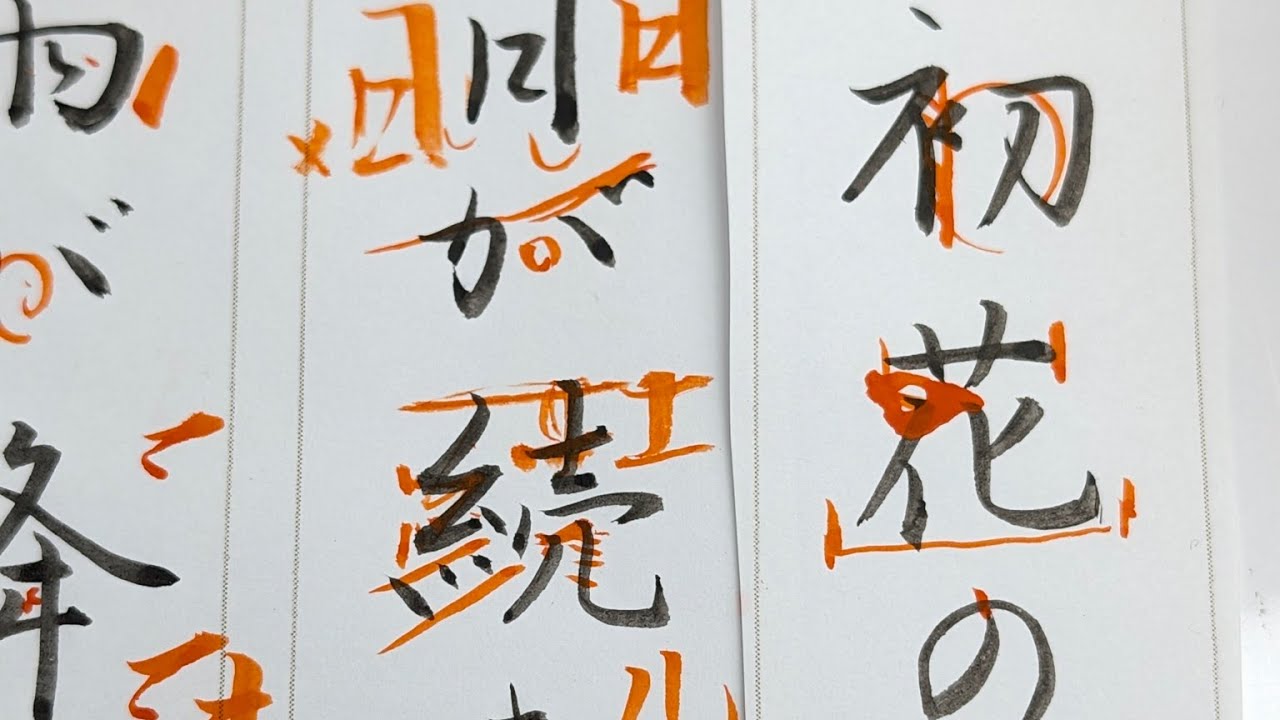 初花の
間が続
雨が降